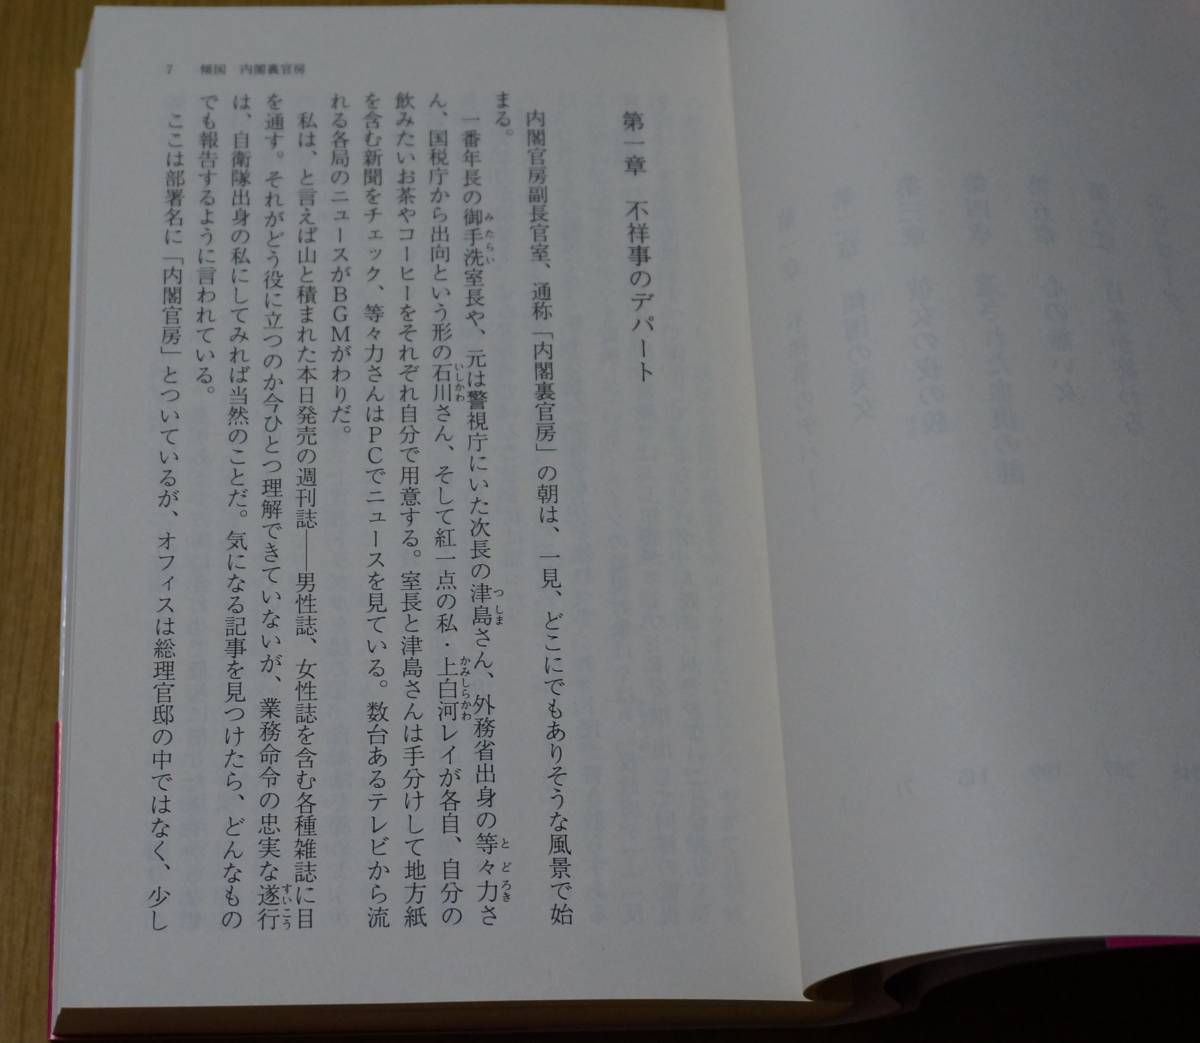 7　傾国　内閣裏官房
第一章　不祥事のデパート
内閣官房副長官室、通称「内閣裏官房」の朝は、一見、どこにでもありそうな風景で始
まる。
一番年長の御手洗室長や、元は警視庁にいた次長の津島さん、外務省出身の等々力さ
みたらい　つしま　とどろき
ん、国税庁から出向という形の石川さん、そして紅一点の私・上白河レイが各自、自分の
いしかわ　かみしらかわ
飲みたいお茶やコーヒーをそれぞれ自分で用意する。室長と津島さんは手分けして地方紙
を含む新聞をチェック、等々力さんはPCでニュースを見ている。数台あるテレビから流
れる各局のニュースがBGMがわりだ。
私は、と言えば山と積まれた本日発売の週刊誌――男性誌、女性誌を含む各種雑誌に目
を通す。それがどう役に立つのか今ひとつ理解できていないが、業務命令の忠実な遂行
すいこう
は、自衛隊出身の私にしてみれば当然のことだ。気になる記事を見つけたら、どんなもの
でも報告するように言われている。
ここは部署名に「内閣官房」とついているが、オフィスは総理官邸の中ではなく、少し